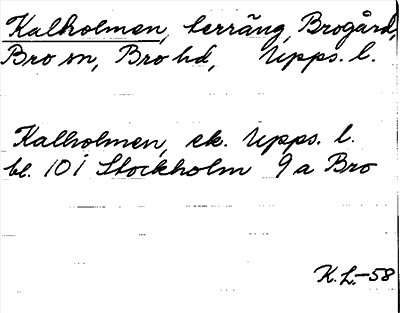 Kalholmen, terräng, Brogård,
Bro sn, Bro hd, Upps. l.
Kalholmen, ek. Upps. l.
bl. 10 i Stockholm 9 a Bro
K. L. -58